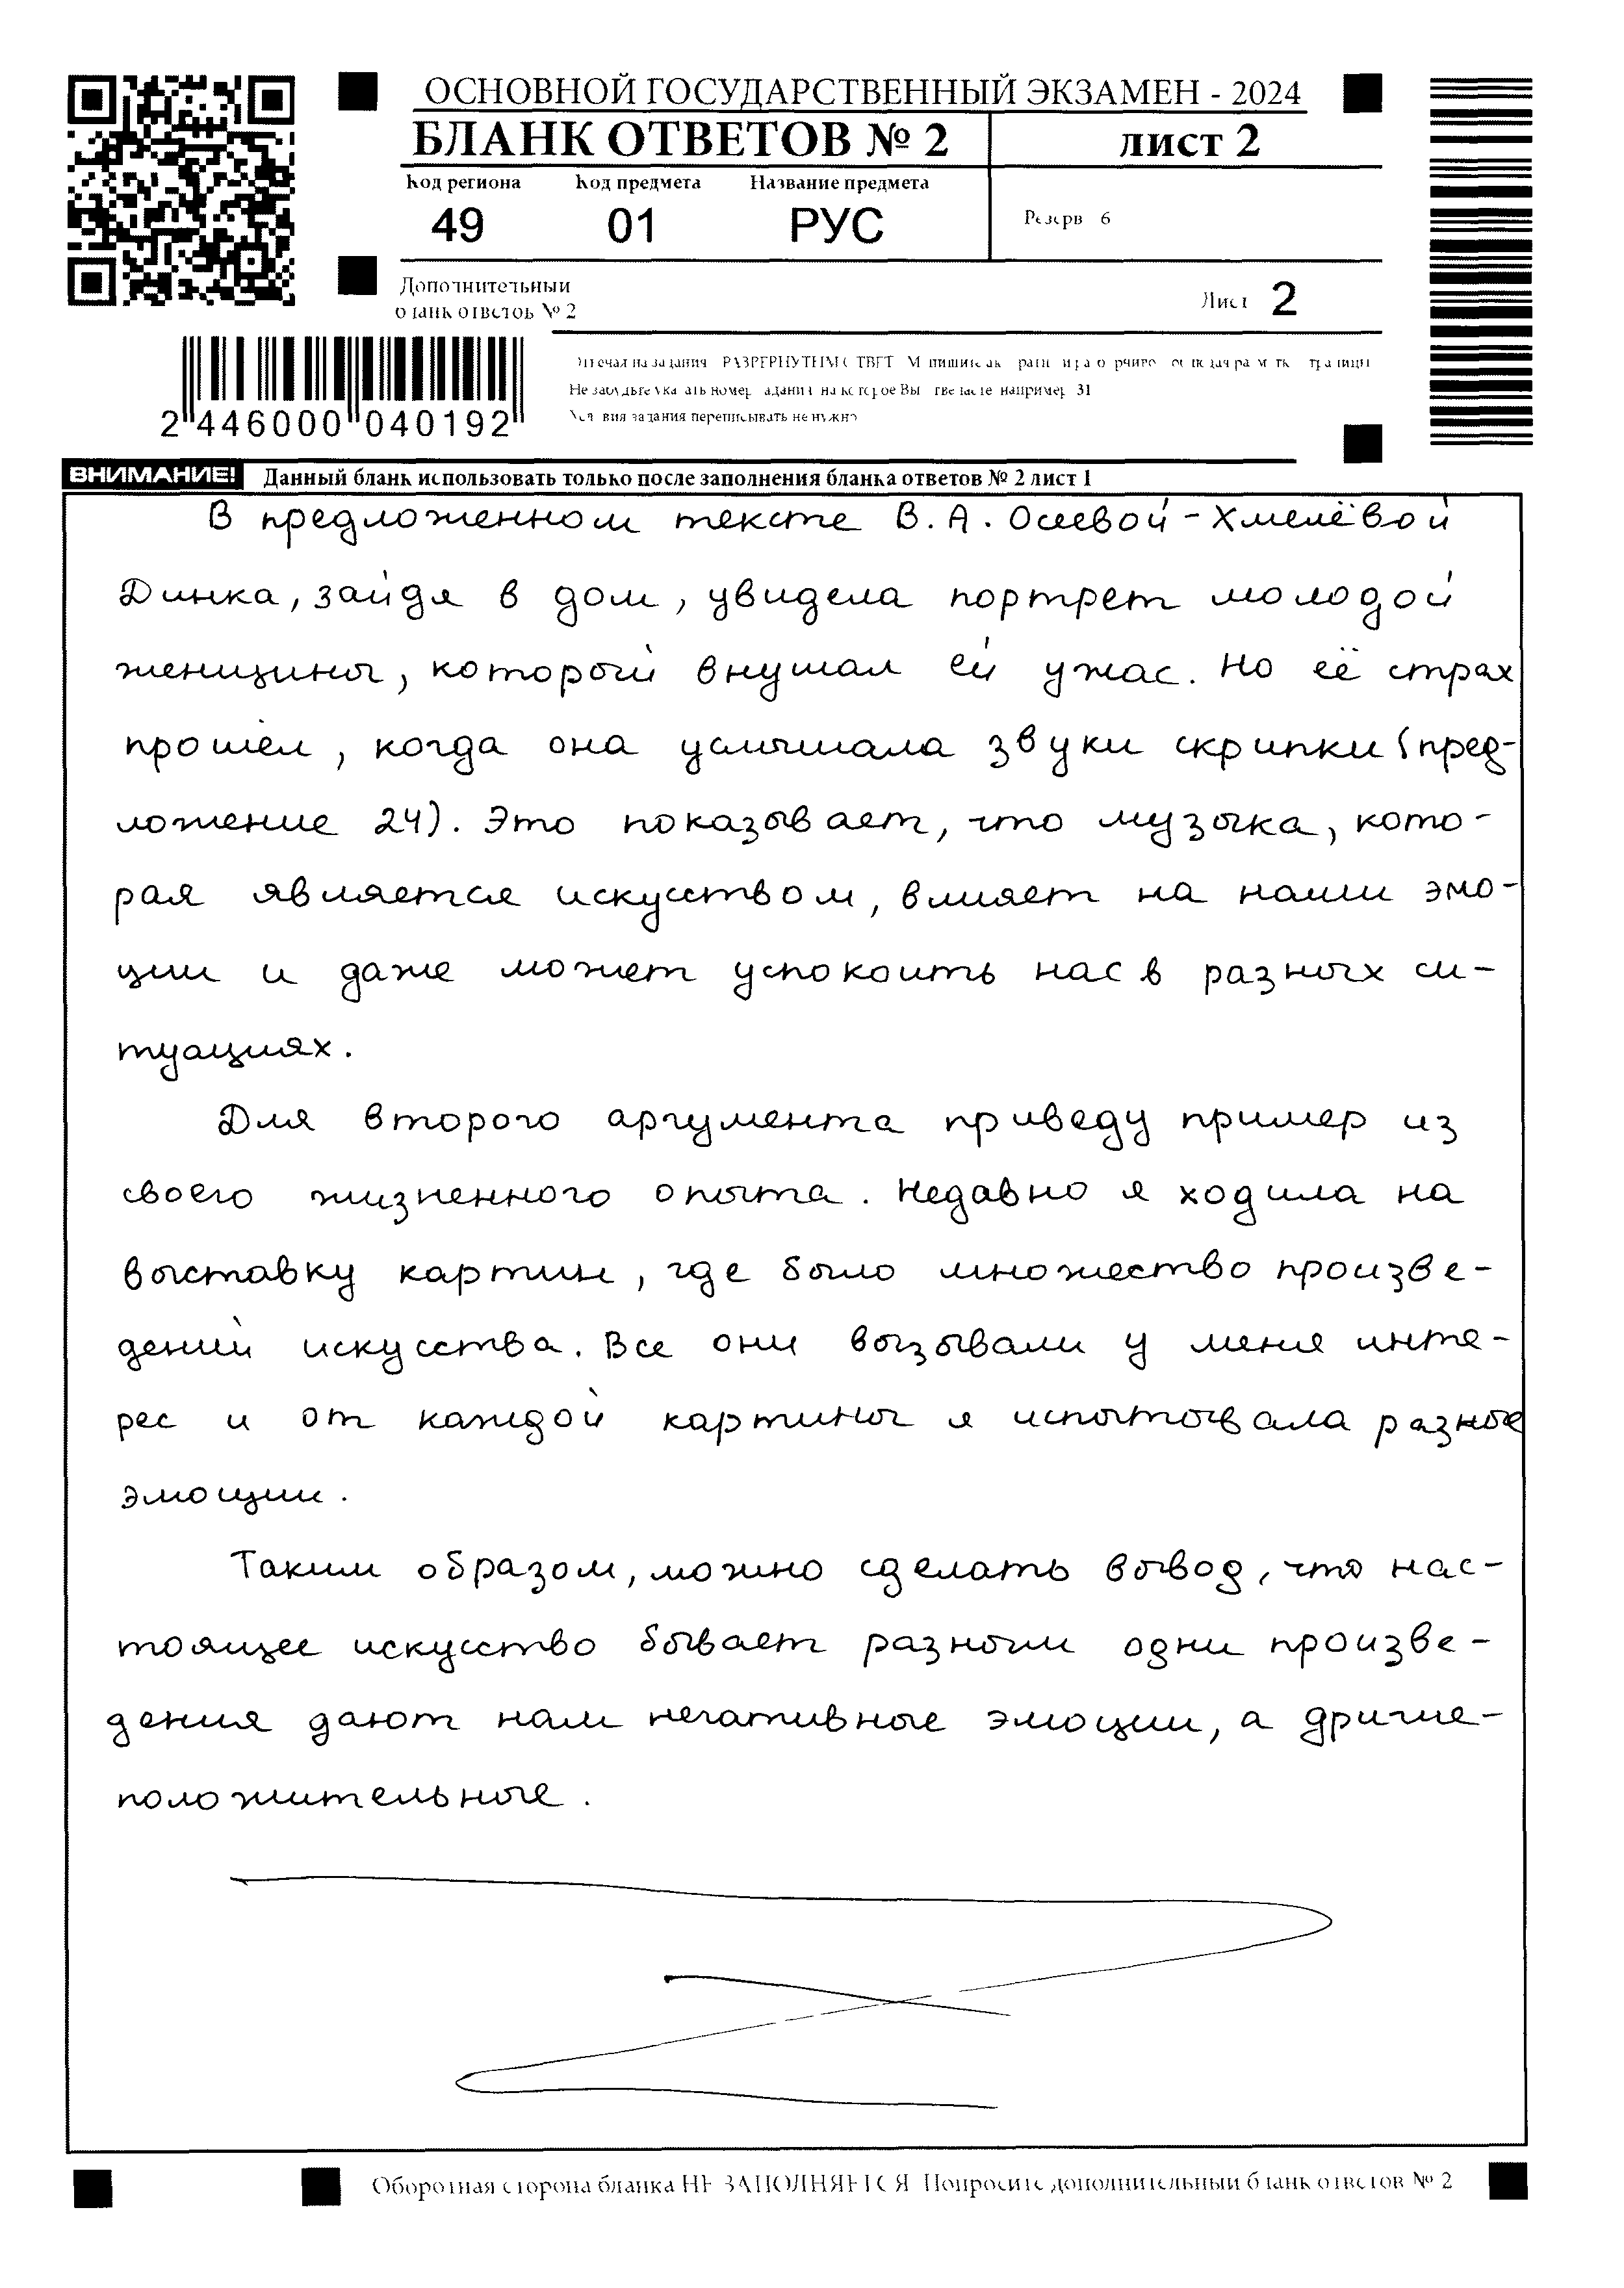 ОСНОВНОЙ ГОСУДАРСТВЕННЫЙ ЭКЗАМЕН - 2024
БЛАНК ОТВЕТОВ № 2 лист 2
Код региона Код предмета Название предмета
49 01 РУС
Резерв 6
Дополнительный
бланк ответов № 2
Лист 2
2 446000 040192
Не забудьте указать номер задания на которое Вы отвечаете например 31
Условия задания переписывать не нужно
ВНИМАНИЕ! Данный бланк использовать только после заполнения бланка ответов № 2 лист 1
В предложенном тексте В. А. Осеевой-Хмелёвой
Динка, зайдя в дом, увидела портрет молодой
женщины, который внушал ей ужас. Но её страх
прошёл, когда она услышала звуки скрипки (пред-
ложение 24). Это показывает, что музыка, кото-
рая является искусством, влияет на наши эмо-
ции и даже может успокоить нас в разных си-
туациях.
Для второго аргумента приведу пример из
своего жизненного опыта. Недавно я ходила на
выставку картин, где было множество произве-
дений искусства. Все они вызывали у меня инте-
рес и от каждой картины я испытывала разные
эмоции.
Таким образом, можно сделать вывод, что нас-
тоящее искусство бывает разным одни произве-
дения дают нам негативные эмоции, а дригие-
положительные.
Оборотная сторона бланка НЕ ЗАПОЛНЯЕТСЯ Попросите дополнительный бланк ответов № 2